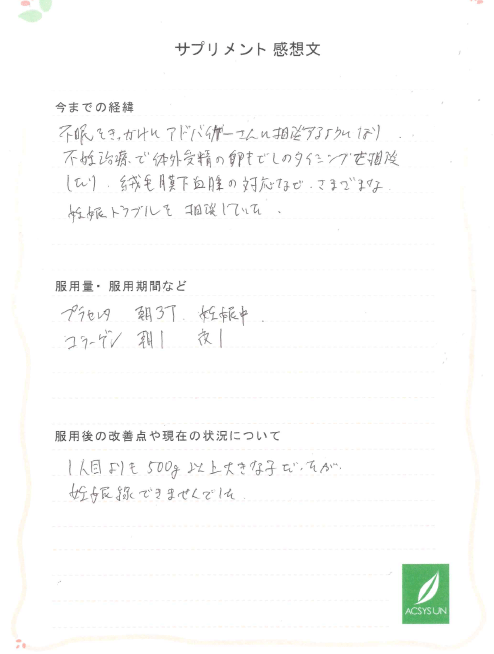 サプリメント 感想文
今までの経緯
不眠をきっかけに アドバイザーさんに相談するようになり
不妊治療で体外受精の卵もどしのタイミングを相談
したり、絨毛膜下血腫の対応など、さまざまな
妊娠トラブルを 相談していた。
服用量・服用期間など
プラセンタ 朝3T 妊娠中
コラーゲン 朝1 夜1
服用後の改善点や現在の状況について
1人目よりも 500g 以上大きな子でしたが、
妊娠線できませんでした
ACSYSUN